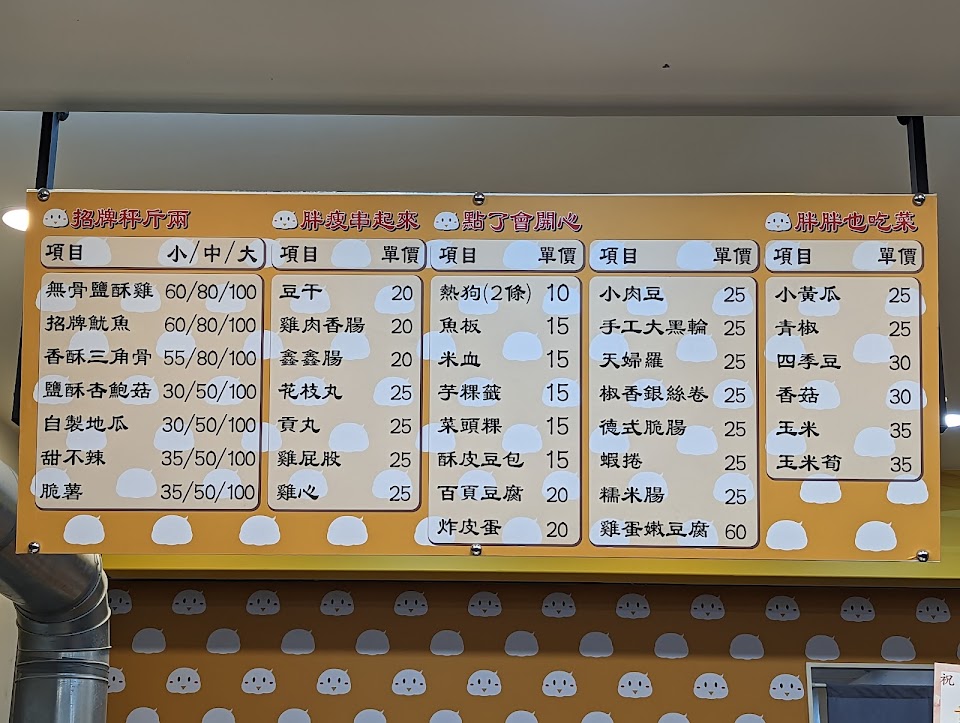 招牌秤斤兩
項目 小/中/大
無骨鹽酥雞 60/80/100
招牌魷魚 60/80/100
香酥三角骨 55/80/100
鹽酥杏鮑菇 30/50/100
自製地瓜 30/50/100
甜不辣 35/50/100
脆薯 35/50/100
胖瘦串起來
項目 單價
豆干 20
雞肉香腸 20
鑫鑫腸 20
花枝丸 25
貢丸 25
雞屁股 25
雞心 25
點了會開心
項目 單價
熱狗(2條) 10
魚板 15
米血 15
芋粿籤 15
菜頭粿 15
酥皮豆包 15
百頁豆腐 20
炸皮蛋 20
項目 單價
小肉豆 25
手工大黑輪 25
天婦羅 25
椒香銀絲卷 25
德式脆腸 25
蝦捲 25
糯米腸 25
雞蛋嫩豆腐 60
胖胖也吃菜
項目 單價
小黃瓜 25
青椒 25
四季豆 30
香菇 30
玉米 35
玉米筍 35
祝